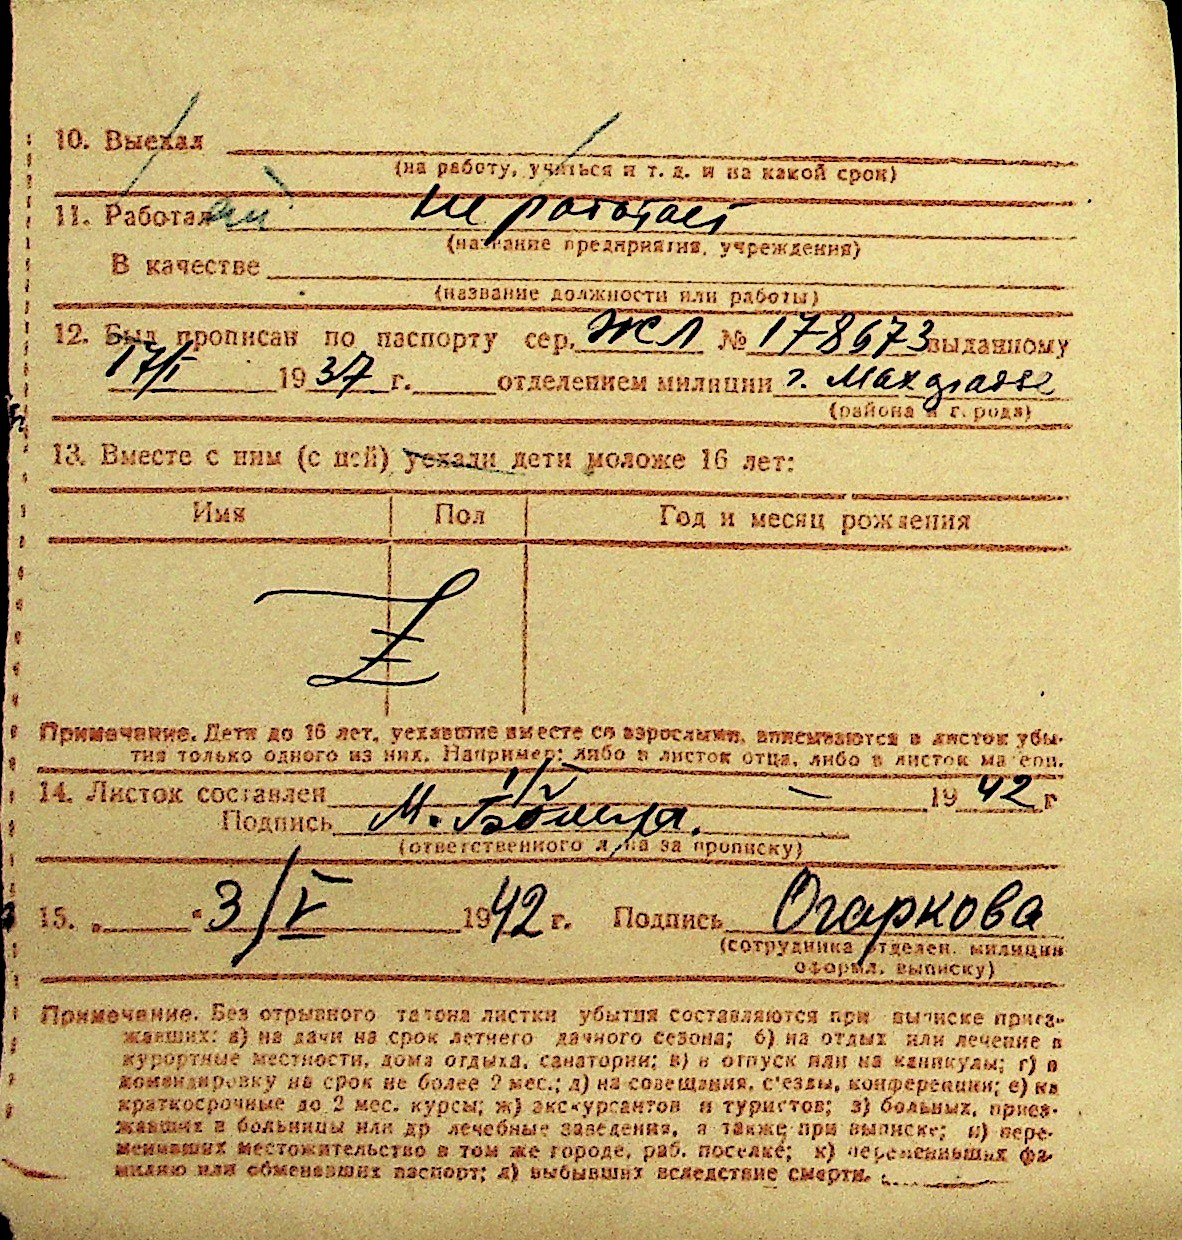 10. Выехал
(на работу, учиться и т. д. и на какой срок)
11. Работал не работает
(название предприятия, учреждения)
В качестве
(название должности или работы)
12. Был прописан по паспорту сер. ЖЛ № 178673 выданному
17/I 1937 г. отделением милиции г. Махградзе
(района и города)
13. Вместе с ним (с ней) уехали дети моложе 16 лет:
Имя Пол Год и месяц рождения
Z
Примечание. Дети до 16 лет, уехавшие вместе со взрослыми, вписываются в листок убы-
тия только одного из них. Например: либо в листок отца, либо в листок матери.
14. Листок составлен 1/V 1942 г
Подпись М.
(ответственного лица за прописку)
15. „ “ 3/V 1942 г. Подпись Огаркова
(сотрудника отделен. милиции
оформл. выписку)
Примечание. Без отрывного талона листки убытия составляются при выписке приез-
жавших: а) на дачи на срок летнего дачного сезона; б) на отдых или лечение в
курортные местности, дома отдыха, санатории; в) в отпуск или на каникулы; г) в
командировку на срок не более 2 мес.; д) на совещания, с'езды, конференции; е) на
краткосрочные до 2 мес. курсы; ж) экскурсантов и туристов; з) больных, приез-
жавших в больницы или др лечебные заведения, а также при выписке; и) пере-
менивших местожительство в том же городе, раб. поселке; к) переменивших фа-
милию или обменявших паспорт; л) выбывших вследствие смерти.